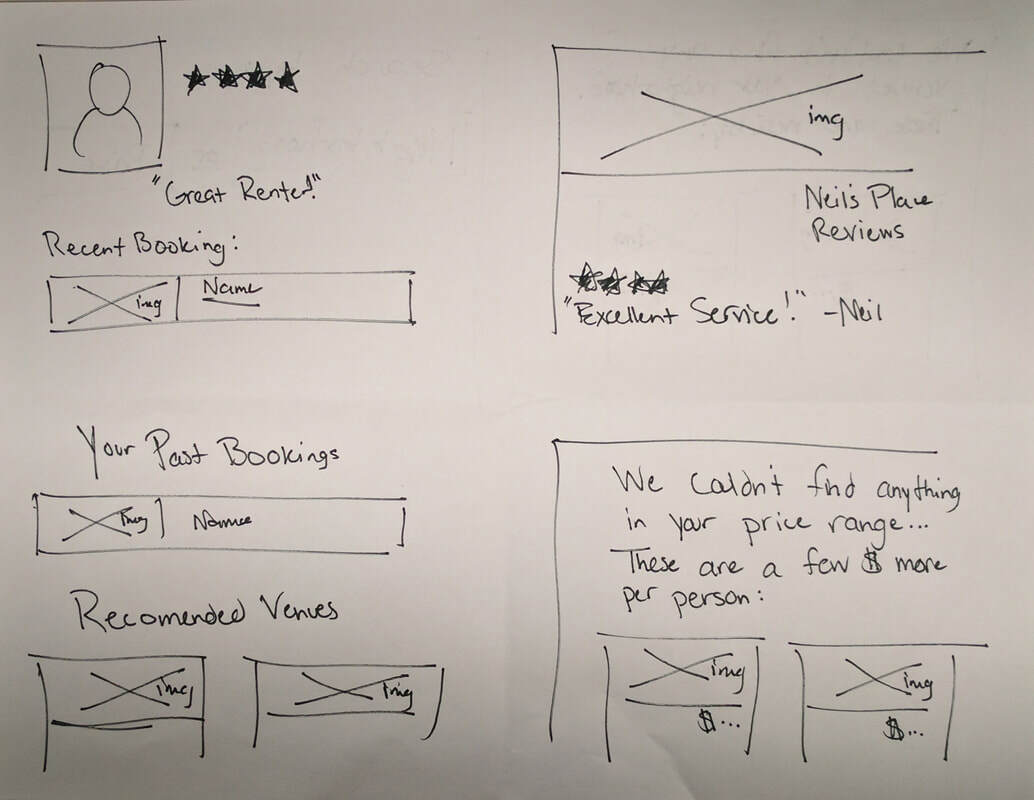 "Great Renter!"
Recent Booking:
img
Name
img
Neil's Place
Reviews
"Excellent Service!" -Neil
Your Past Bookings
img
Name
Recomended Venues
img
img
We Couldn't find anything
in your price range...
These are a few $ more
per person:
img
$...
img
$...